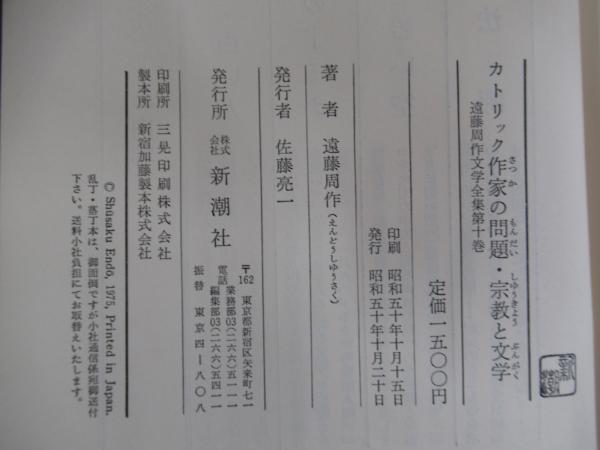 カトリック作家の問題・宗教と文学
さっか
もんだい
しゅうきょう
ぶんがく
遠藤周作文学全集第十巻
定価一五〇〇円
印刷 昭和五十年十月十五日
発行 昭和五十年十月二十日
著者 遠藤周作（えんどうしゅうさく）
発行者 佐藤亮一
発行所 株式会社 新潮社
〒162 東京都新宿区矢来町七一
電話 業務部03(二六六)五一一一
編集部03(二六六)五四一一
振替 東京四—八〇八
印刷所 三晃印刷株式会社
製本所 新宿加藤製本株式会社
© Shūsaku Endō, 1975, Printed in Japan.
乱丁・落丁本は、御面倒ですが小社通信係宛御送付
下さい。送料小社負担にてお取替えいたします。